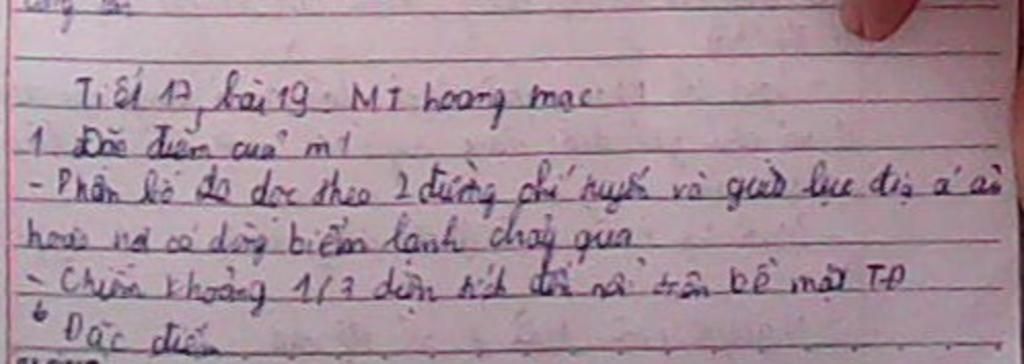 Tiết 17, bài 19: MT hoang mạc
1 Đặc điểm của mt
- Phân bố dọc theo 2 đường chí tuyến và giữa lục địa á âu
hoặc nơi có dòng biển lạnh chảy qua
- Chiếm khoảng 1/3 diện tích đất nổi trên bề mặt TĐ
* Đặc điểm